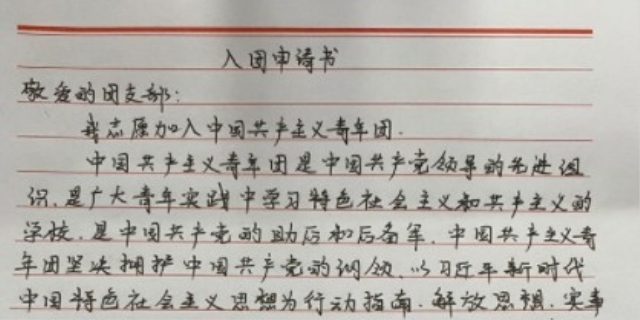 入团申请书
敬爱的团支部:
我志愿加入中国共产主义青年团.
中国共产主义青年团是中国共产党领导的先进组
织,是广大青年实践中学习特色社会主义和共产主义的
学校,是中国共产党的助后和后备军.中国共产主义青
年团坚决拥护中国共产党的纲领,以习近平新时代
中国特色社会主义思想为行动指南.解放思想.实事